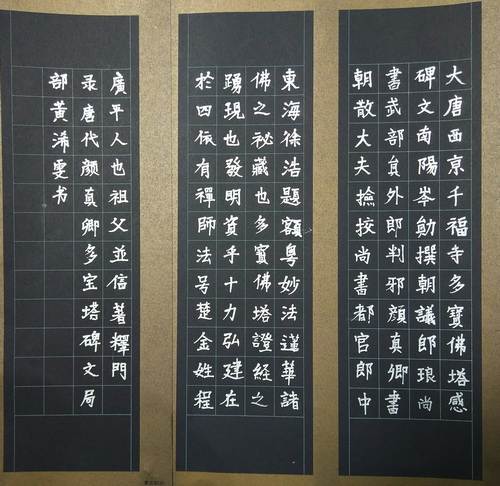 大唐西京千福寺多寶佛塔感
碑文南陽岑勛撰朝議郎琅尚
書武部員外郎判邪顏真卿書
朝散大夫撿挍尚書都官郎中
東海徐浩題額粵妙法蓮華諸
佛之祕藏也多寶佛塔證經之
踴現也發明資乎十力弘建在
於四依有禪師法号楚金姓程
廣平人也祖父並信著釋門
录唐代颜真卿多宝塔碑文局
部黄浠雯书